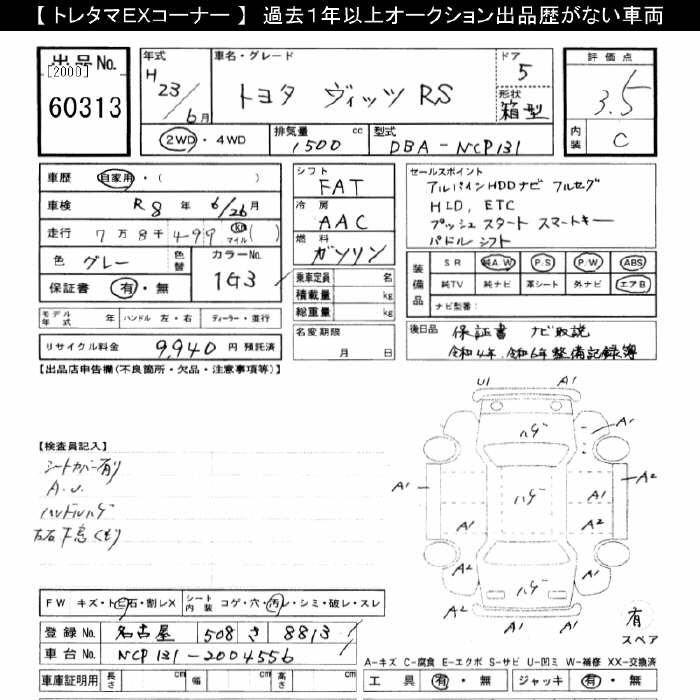 【 トレタマEXコーナー 】 過去1年以上オークション出品歴がない車両
出品No.
[2000]
60313
年式
H
23
6月
車名・グレード
トヨタ ヴィッツ RS
ドア
5
形状
箱型
評価点
3.5
内装
C
2WD・4WD
排気量
1,500 cc
型式
DBA-NCP131
車歴
自家用・( )
車検 R8年 6/26月
走行 7万8千499 km マイル ( )
色 グレー
色替
カラーNo.
1G3
保証書 有・無
モデル年式 年
ハンドル 左・右
ディーラー・並行
リサイクル料金 9,940 円 預託済
シフト
FAT
冷房
AAC
燃料
ガソリン
乗車定員 名
積載量 kg
総重量 kg
名変期限
月 日
セールスポイント
アルパインHDDナビ フルセグ
HID, ETC
プッシュスタート スマートキー
パドルシフト
装備品
SR 純A.W P.S P.W ABS
純TV 純ナビ 革シート 外ナビ エアB
ナビ型番:
後日品
保証書 ナビ取説
令和4年,令和6年整備記録簿
【出品店申告欄(不良箇所・欠品・注意事項等)】
【検査員記入】
シートカバー有り
A.U.
ハンドルハゲ
左右下忘くもり
U1
A1
A1
ハゲ
A1
A2
ハゲ
A1
A1
A2
A1
ハゲ
A2
A1
有
スペア
FW キズ・トビ石・割レX
シート内装 コゲ・穴・汚レ・シミ・破レ・スレ
登録No. 名古屋 508 さ 8813
車台No. NCP131-2004556
車庫証明用 長さ cm 幅 cm 高さ cm
A-キズ C-腐食 E-エクボ S-サビ U-凹ミ W-補修 XX-交換済
工具 有・無
ジャッキ 有・無